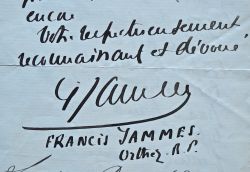 encore
Votre respectueusement
reconnaissant et dévoué,
F Jammes
FRANCIS JAMMES.
Orthez. B.P.